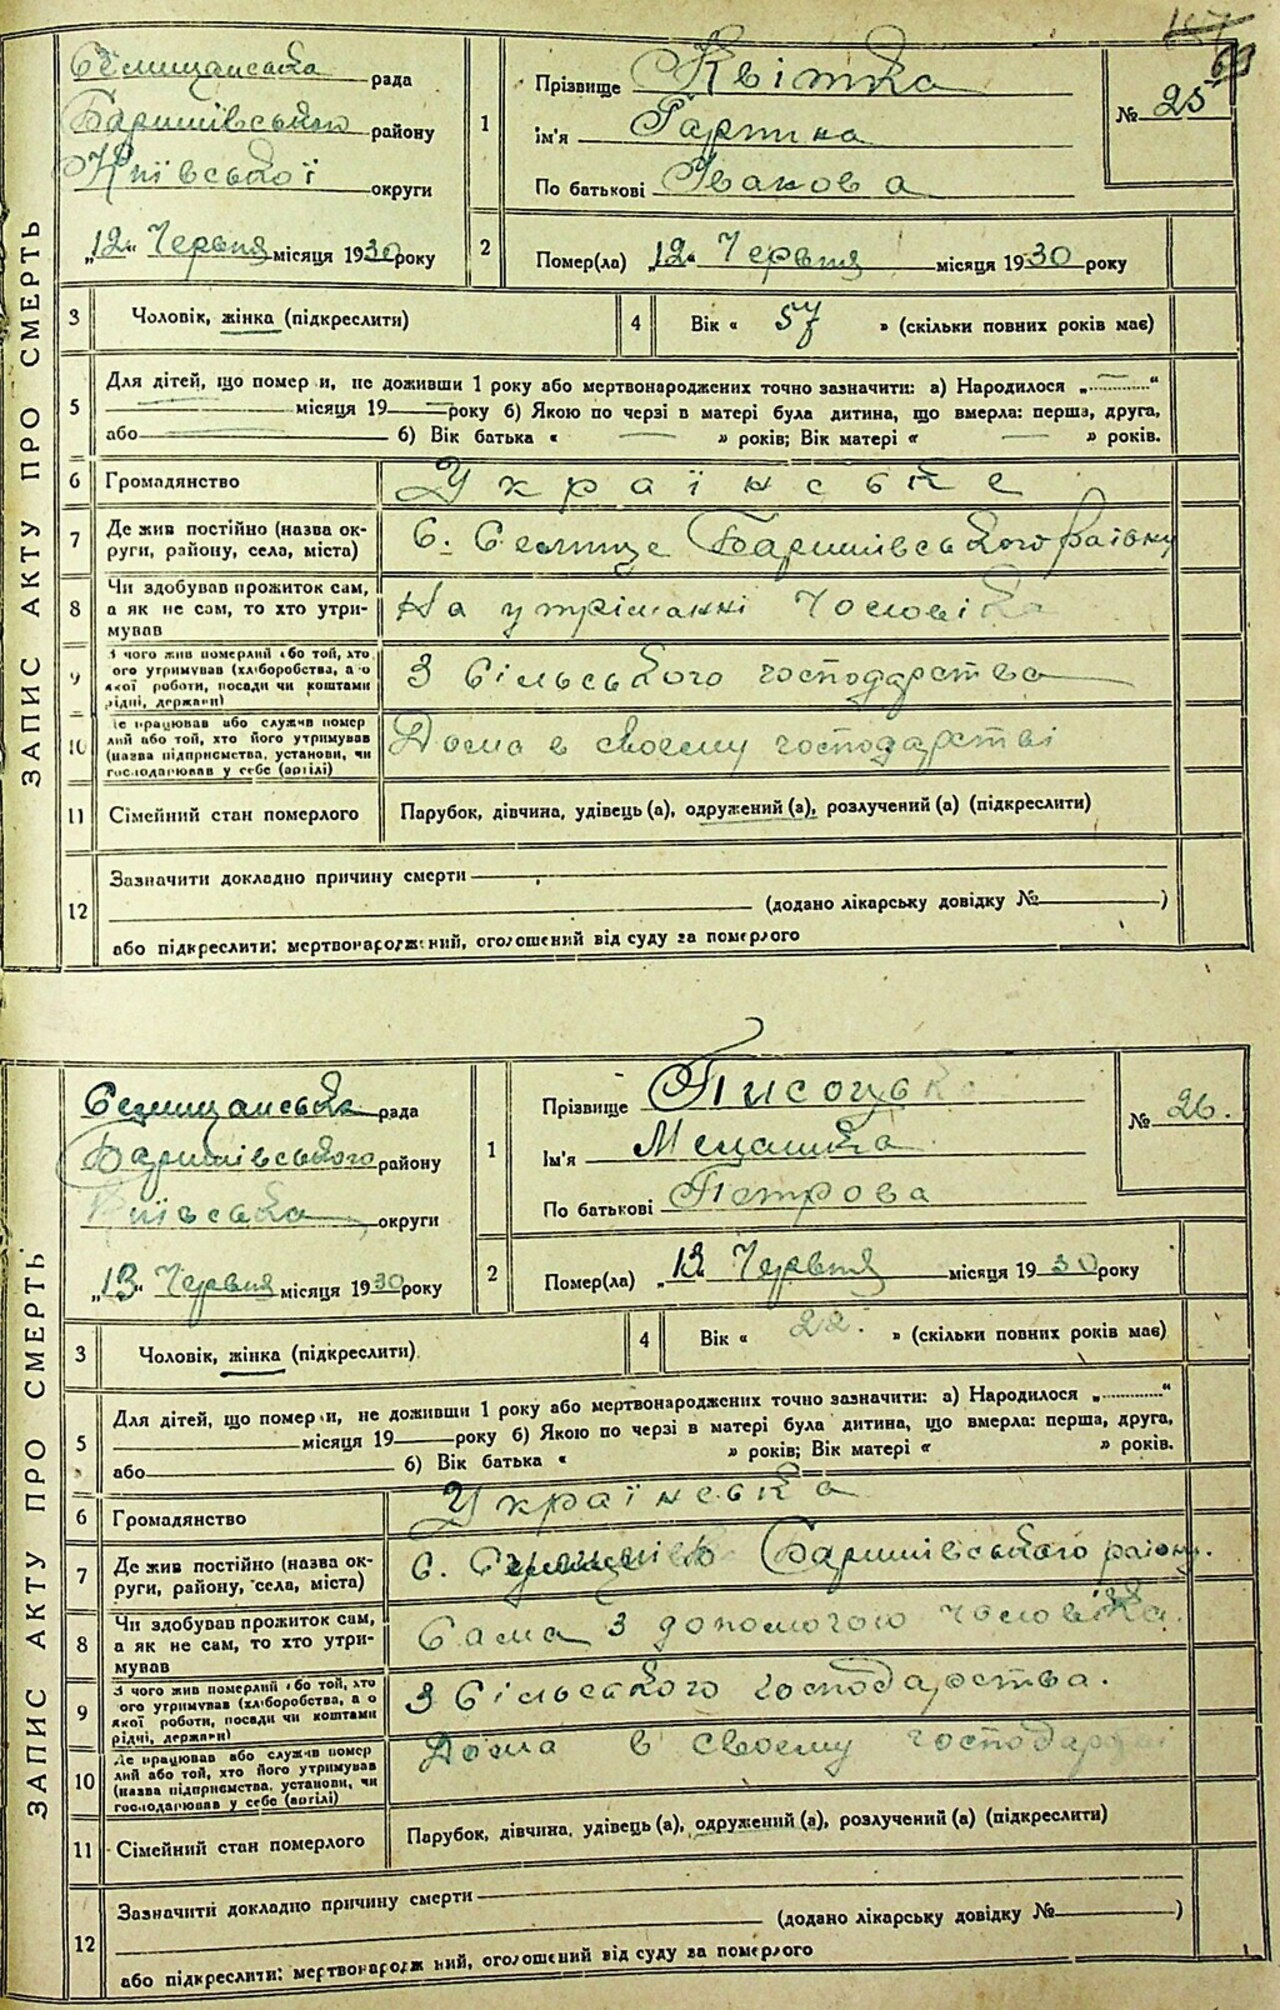 ЗАПИС АКТУ ПРО СМЕРТЬ
Селищанська рада
Баришівського району
Київської округи
„12“ Червня місяця 1930 року
1
Прізвище Квітка
Ім'я
По батькові Іванова
№ 25
63
2
Помер(ла) „12“ Червня місяця 1930 року
3
Чоловік, жінка (підкреслити)
4
Вік « 57 » (скільки повних років має)
5
Для дітей, що помер и, не доживши 1 року або мертвонароджених точно зазначити: а) Народилося „ — “
— місяця 19 — року б) Якою по черзі в матері була дитина, що вмерла: перша, друга,
або — б) Вік батька « — » років; Вік матері « — » років.
6
Громадянство
Українське
7
Де жив постійно (назва ок-
руги, району, села, міста)
С. Селище Баришівського району
8
Чи здобував прожиток сам,
а як не сам, то хто утри-
мував
На утріманні Чоловіка
9
З чого жив померлий або той, хто
ого утримував (хліборобства, а о
якої роботи, посади чи коштами
рідні, держави)
З Сільського господарства
10
Де працював або служив помер
лий або той, хто його утримував
(назва підприємства, установи, чи
господарював у себе (артілі)
Дома в своему господарстві
11
Сімейний стан померлого
Парубок, дівчина, удівець (а), одружений (а), розлучений (а) (підкреслити)
12
Зазначити докладно причину смерти
(додано лікарську довідку № )
або підкреслити: мертвонароджений, оголошений від суду за померлого
ЗАПИС АКТУ ПРО СМЕРТЬ
Селищанська рада
Баришівського району
Київська округи
„13“ Червня місяця 1930 року
1
Прізвище Писоцька
Ім'я
По батькові Петрова
№ 26.
2
Помер(ла) „13“ Червня місяця 1930 року
3
Чоловік, жінка (підкреслити)
4
Вік « 22. » (скільки повних років має)
5
Для дітей, що помер и, не доживши 1 року або мертвонароджених точно зазначити: а) Народилося „ “
місяця 19 року б) Якою по черзі в матері була дитина, що вмерла: перша, друга,
або б) Вік батька « » років; Вік матері « » років.
6
Громадянство
Українська
7
Де жив постійно (назва ок-
руги, району, села, міста)
С. Баришівського району.
8
Чи здобував прожиток сам,
а як не сам, то хто утри-
мував
Сама з допомогою чоловіка.
9
З чого жив померлий або той, хто
ого утримував (хліборобства, а о
якої роботи, посади чи коштами
рідні, держави)
З Сільського господарства.
10
Де працював або служив помер
лий або той, хто його утримував
(назва підприємства, установи, чи
господарював у себе (артілі)
Дома в своему господарстві
11
Сімейний стан померлого
Парубок, дівчина, удівець (а), одружений (а), розлучений (а) (підкреслити)
12
Зазначити докладно причину смерти
(додано лікарську довідку № )
або підкреслити: мертвонародж ний, оголошений від суду за померлого